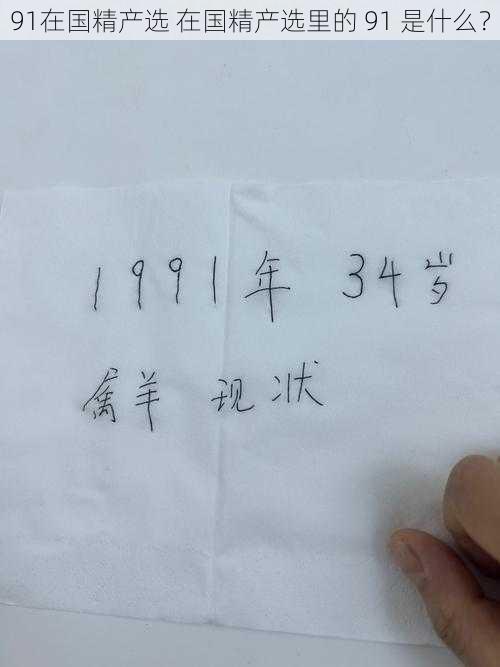 91在国精产选 在国精产选里的 91 是什么？
1991年 34岁
属羊 现状